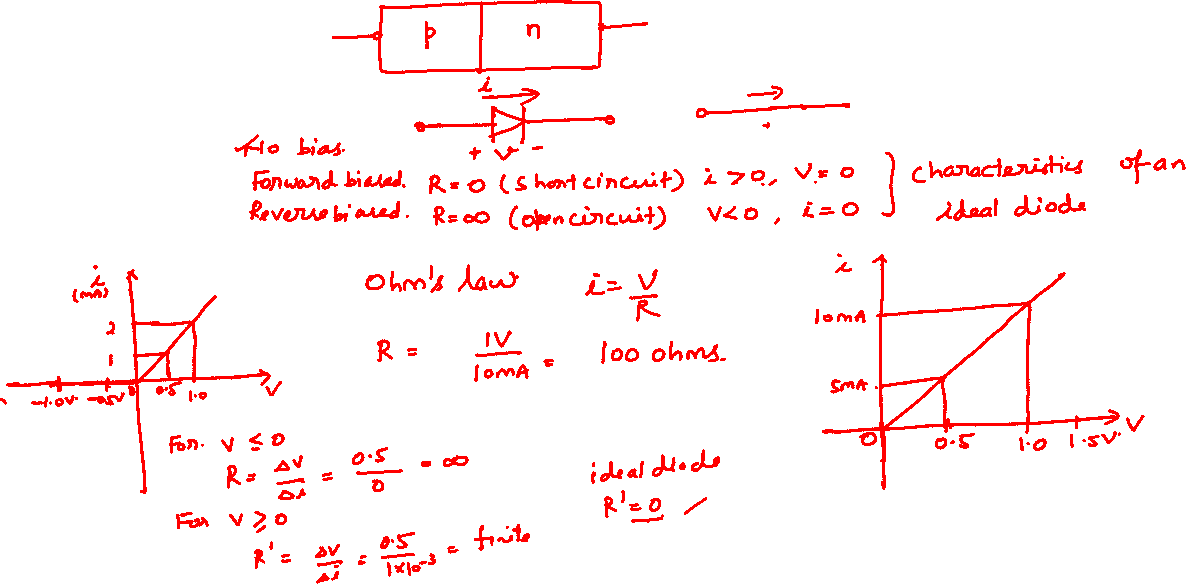 p n
i
+ V -
No bias.
Forward biased. R = 0 (short circuit) i > 0, V = 0
Reverse biased. R = ∞ (open circuit) V < 0, i = 0
characteristics of an
ideal diode
i
(mA)
2
1
-1.0V -0.5V 0 0.5 1.0 V
Ohm's law i = V/R
R = 1V/10mA = 100 ohms.
i
10mA
5mA
0 0.5 1.0 1.5V V
For V ≤ 0
R = ΔV/Δi = 0.5/0 = ∞
For V ≥ 0
R' = ΔV/Δi = 0.5/1×10⁻³ = finite
ideal diode
R' = 0